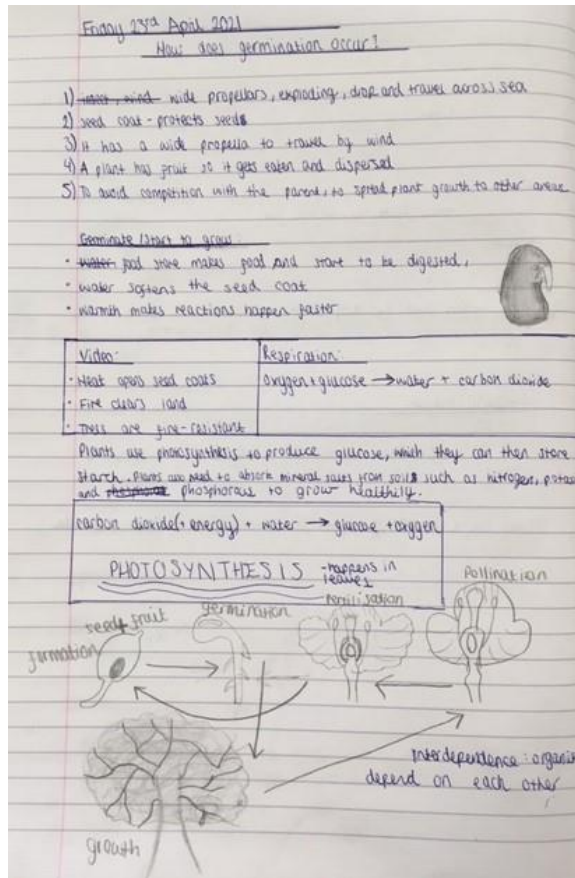 Friday 23rd April 2021
How does germination occur?
1) wide propellars, exploding, drop and travel across sea
2) seed coat - protects seeds
3) It has a wide propella to travel by wind
4) A plant has fruit so it gets eaten and dispersed
5) To avoid competition with the parent, to spread plant growth to other areas
Germinate /start to grow:
• food store makes food and start to be digested,
• water softens the seed coat
• warmth makes reactions happen faster
Video:
• Heat opens seed coats
• Fire clears land
• Trees are fire-resistant
Respiration:
oxygen + glucose → water + carbon dioxide
Plants use photosynthesis to produce glucose, which they can then store
starch. Plants also need to absorb mineral salts from soils such as nitrogen, potas
and phosphorous to grow healthily.
carbon dioxide (+ energy) + water → glucose + oxygen
PHOTOSYNTHESIS
- happens in
leaves
Pollination
fertilisation
germination
seed + fruit
formation
Interdependence: organis
depend on each other
growth